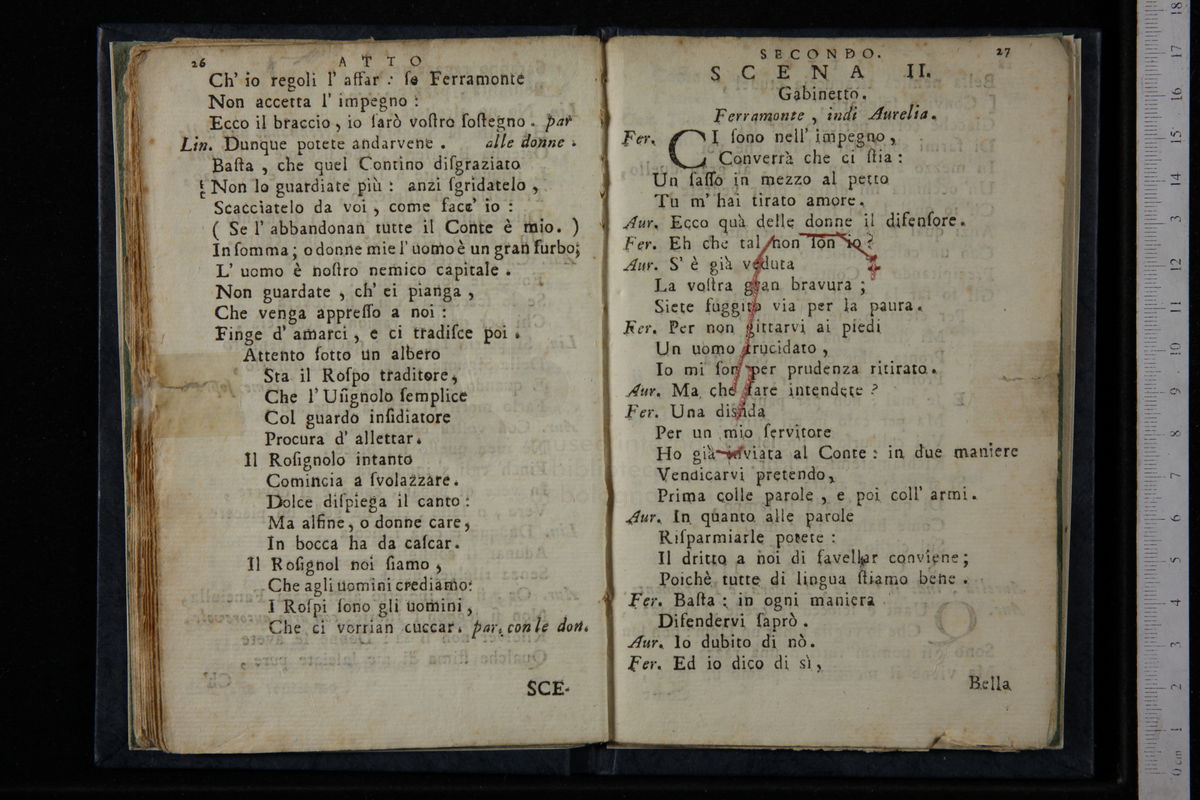 26 ATTO
Ch' io regoli l' affar : ſe Ferramonte
Non accetta l' impegno :
Ecco il braccio , io ſarò voſtro ſoſtegno . par
Lin. Dunque potete andarvene . alle donne .
Baſta , che quel Contino diſgraziato
Non lo guardiate più : anzi ſgridatelo ,
Scacciatelo da voi , come facc' io :
( Se l' abbandonan tutte il Conte è mio. )
In ſomma ; o donne mie l' uomo è un gran furbo;
L' uomo è noſtro nemico capitale .
Non guardate , ch' ei pianga ,
Che venga appreſſo a noi :
Finge d' amarci , e ci tradiſce poi .
Attento ſotto un albero
Sta il Roſpo traditore,
Che l' Uſignolo ſemplice
Col guardo inſidiatore
Procura d' allettar.
Il Roſignolo intanto
Comincia a ſvolazzare.
Dolce diſpiega il canto :
Ma alfine, o donne care,
In bocca ha da caſcar.
Il Roſignol noi ſiamo ,
Che agli uomini crediamo:
I Roſpi ſono gli uomini,
Che ci vorrian cuccar. par. con le don.
SCE-
SECONDO. 27
SCENA II.
Gabinetto.
Ferramonte , indi Aurelia.
Fer. CI ſono nell' impegno,
Converrà che ci ſtia :
Un ſaſſo in mezzo al petto
Tu m' hai tirato amore.
Aur. Ecco quà delle donne il difenſore.
Fer. Eh che tal non ſon io ?
Aur. S' è già veduta
La voſtra gran bravura ;
Siete fuggito via per la paura.
Fer. Per non gittarvi ai piedi
Un uomo trucidato ,
Io mi ſon per prudenza ritirato.
Aur. Ma che fare intendete ?
Fer. Una disfida
Per un mio ſervitore
Ho già inviata al Conte : in due maniere
Vendicarvi pretendo,
Prima colle parole , e poi coll' armi.
Aur. In quanto alle parole
Riſparmiarle potete :
Il dritto a noi di favellar conviene;
Poichè tutte di lingua ſtiamo bene .
Fer. Baſta : in ogni maniera
Difendervi ſaprò .
Aur. Io dubito di nò.
Fer. Ed io dico di sì,
Bella